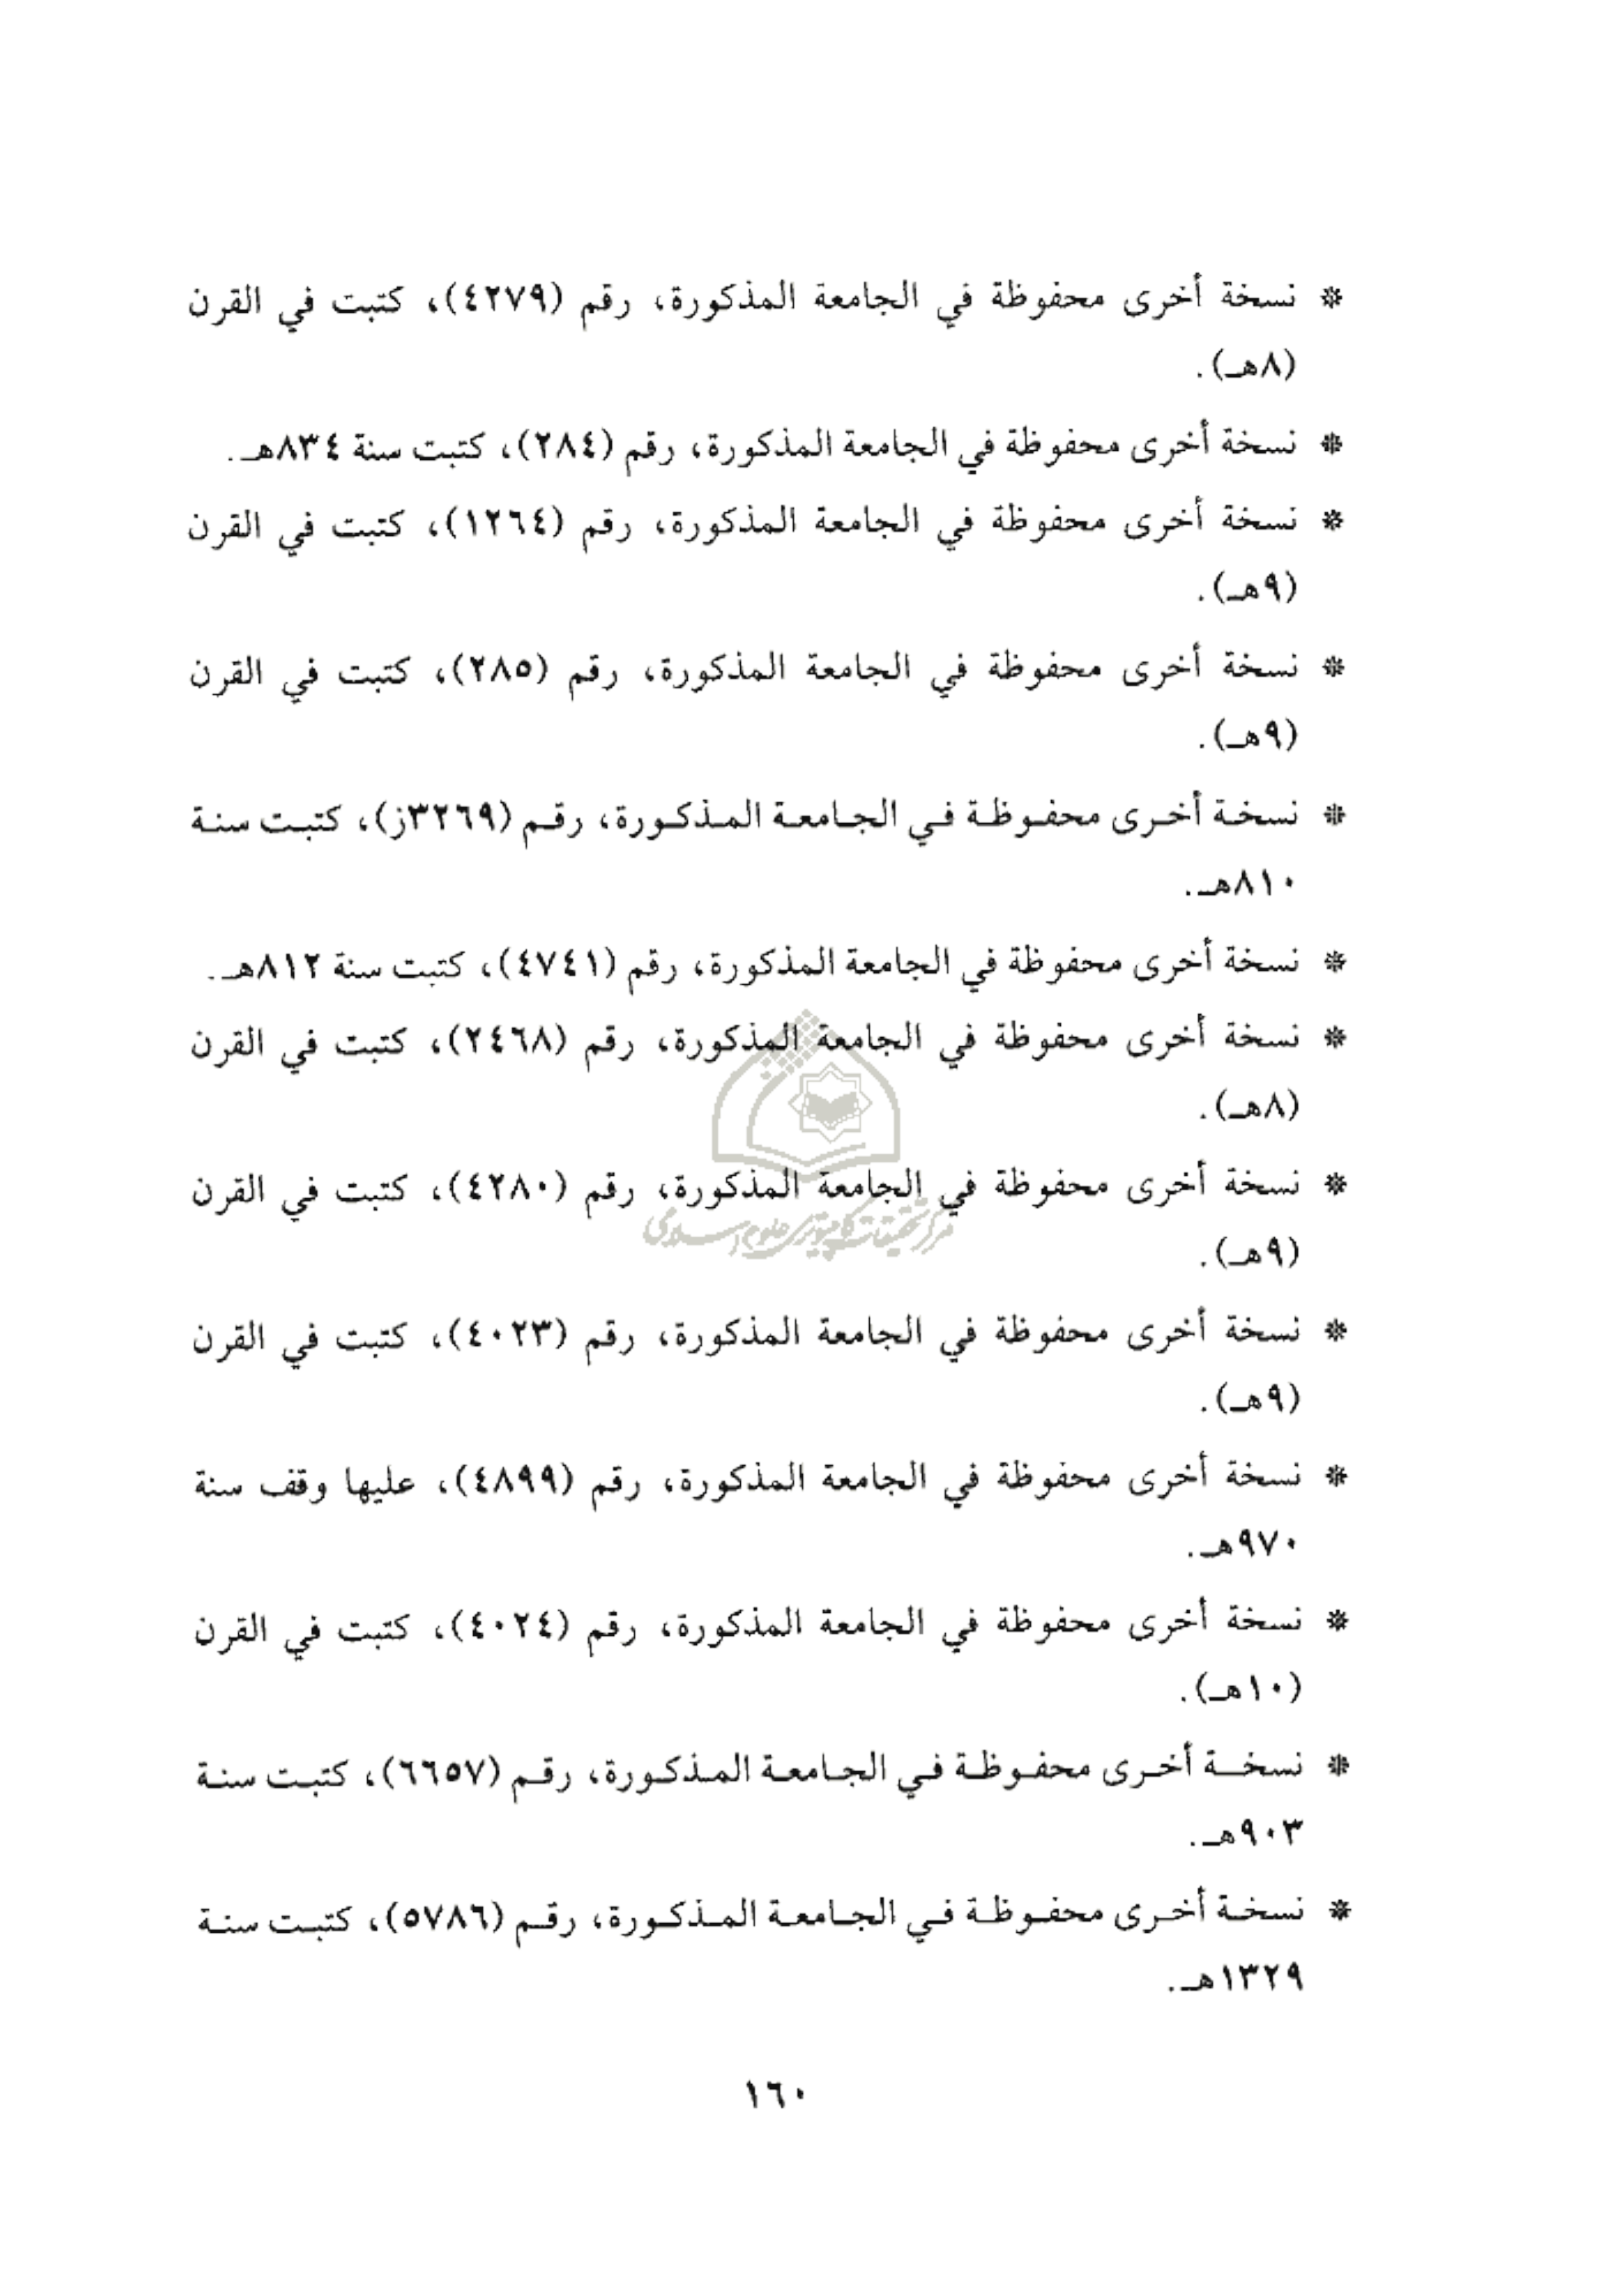 * نسخة أخرى محفوظة في الجامعة المذكورة، رقم (٤٢٧٩)، كتبت في القرن
(٨هـ).
* نسخة أخرى محفوظة في الجامعة المذكورة، رقم (٢٨٤)، كتبت سنة ٨٣٤هـ.
* نسخة أخرى محفوظة في الجامعة المذكورة، رقم (١٢٦٤)، كتبت في القرن
(٩هـ).
* نسخة أخرى محفوظة في الجامعة المذكورة، رقم (٢٨٥)، كتبت في القرن
(٩هـ).
* نسخة أخرى محفوظة في الجامعة المذكورة، رقم (٣٢٦٩ز)، كتبت سنة
٨١٠هـ.
* نسخة أخرى محفوظة في الجامعة المذكورة، رقم (٤٧٤١)، كتبت سنة ٨١٢هـ.
* نسخة أخرى محفوظة في الجامعة المذكورة، رقم (٢٤٦٨)، كتبت في القرن
(٨هـ).
* نسخة أخرى محفوظة في الجامعة المذكورة، رقم (٤٢٨٠)، كتبت في القرن
مرکز تحقیقات کامپیوتری علوم اسلامی
(٩هـ).
* نسخة أخرى محفوظة في الجامعة المذكورة، رقم (٤٠٢٣)، كتبت في القرن
(٩هـ).
* نسخة أخرى محفوظة في الجامعة المذكورة، رقم (٤٨٩٩)، عليها وقف سنة
٩٧٠هـ.
* نسخة أخرى محفوظة في الجامعة المذكورة، رقم (٤٠٢٤)، كتبت في القرن
(١٠هـ).
* نسخة أخرى محفوظة في الجامعة المذكورة، رقم (٦٦٥٧)، كتبت سنة
٩٠٣هـ.
* نسخة أخرى محفوظة في الجامعة المذكورة، رقم (٥٧٨٦)، كتبت سنة
١٣٢٩هـ.
١٦٠